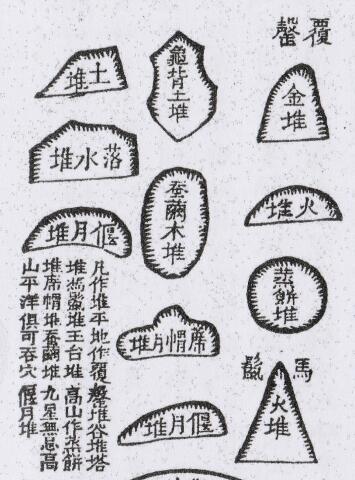 覆罄
金堆
火堆
蒸餅堆
馬鬣
火堆
龜背土堆
蚕繭木堆
席帽月堆
偃月堆
土堆
落水堆
偃月堆
凡作堆平地作覆磬堆谷堆塔
堆堆玉台堆高山作蒸餅
堆席帽堆蚕繭堆九星無忌高
山平洋俱可吞穴偃月堆